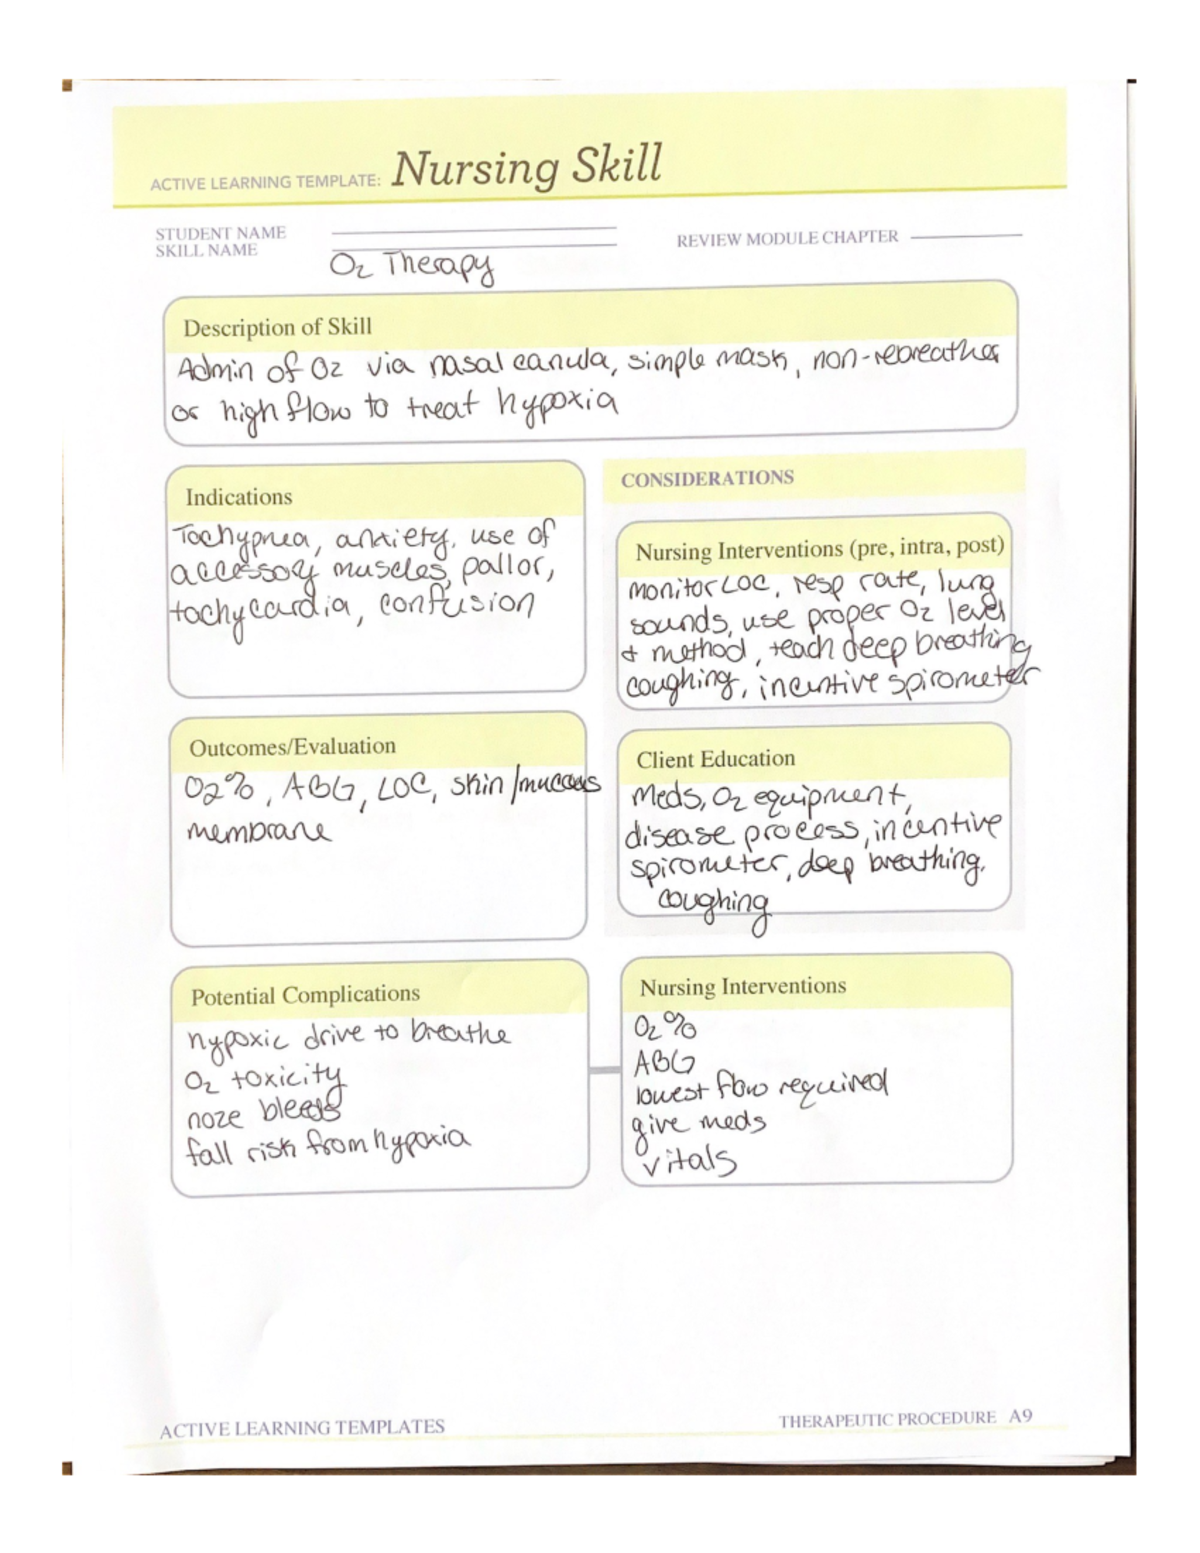 ACTIVE LEARNING TEMPLATE: Nursing Skill
STUDENT NAME
SKILL NAME
REVIEW MODULE CHAPTER
O2 Therapy
Description of Skill
Admin of O2 via nasal canula, simple mask, non-rebreather
or high flow to treat hypoxia
Indications
Tachypnea, anxiety, use of
accessory muscles, pallor,
tachycardia, confusion
CONSIDERATIONS
Nursing Interventions (pre, intra, post)
monitor LOC, resp rate, lung
sounds, use proper O2 level
+ method, teach deep breathing
coughing, incentive spirometer
Outcomes/Evaluation
O2%, ABG, LOC, skin/mucous
membrane
Client Education
Meds, O2 equipment,
disease process, incentive
spirometer, deep breathing,
coughing
Potential Complications
hypoxic drive to breathe
O2 toxicity
noze bleeds
fall risk from hypoxia
Nursing Interventions
O2%
ABG
lowest flow required
give meds
vitals
ACTIVE LEARNING TEMPLATES
THERAPEUTIC PROCEDURE A9